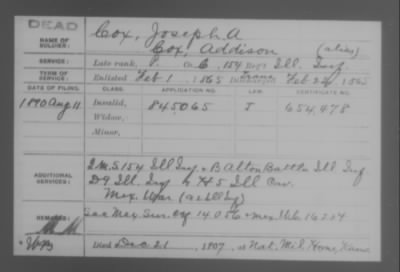 DEAD
NAME OF SOLDIER: Cox, Joseph A
Cox, Addison (alias)
SERVICE: Late rank, P. Co. C, 154 Reg't Ill. Inf
TERM OF SERVICE: Enlisted Feb 1 1865 Discharged Feb 22, 1865
DATE OF FILING. CLASS. APPLICATION NO. LAW. CERTIFICATE NO.
1890 Aug 11 Invalid, 845065 J 654,478
Widow,
Minor,
ADDITIONAL SERVICES: 154 Ill Inf & B Alton Battn Ill Inf
D 9 Ill. Inf & H 5 Ill Cav.
Mex. War (2 Ill Inf)
REMARKS: See Mex. Sur. Ctf 14056 & Mex.
Died Dec 21, 1907, at Nat. Mil. Home, Kans